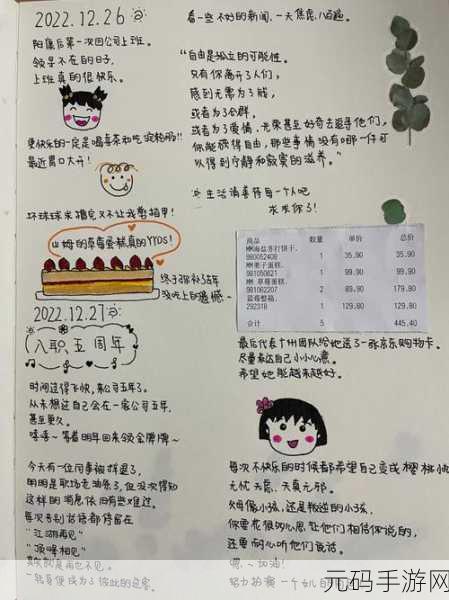 2022.12.26
阳康后第一次回公司上班。
领导不在的日子，
上班真的很快乐。
更快乐的一定是喝喜茶和吃淀粉肠！
最近胃口大开！
环球球来撸它又不让我剪指甲！
山姆的草莓蛋糕真的YYDS！
终于弥补了去年
没吃上的遗憾～
2022.12.27
入职五周年
时间过得飞快，来公司五年了。
从未想过自己会在一家公司五年，
甚至更久。
嘻嘻～等着明年回来领金牌牌～
今天有一位同事被裁退了，
明明是职场老油条了，但没次得知
这样的消息依旧有些难过。
每次告别话语都停留在
“江湖再见”
“顶峰相见”
其实就是再也不见。
看一些不好的新闻，一天焦虑八百遍。
“自由是独立的可能性。
只有你离开了人们，
感到无需为了钱，
或者为了合群，
或者为了爱情、光荣甚至好奇去追寻他们，
你能获得自由，那些事情没有哪一件可
以得到宁静和寂寞的滋养。”
生活请善待每一个人吧
求求你了！
商品 数量 单价 总价
海盐苏打饼干.
980052408 1 35.90 35.90
栗子蛋糕.
981050621 1 99.90 99.90
草莓蛋糕.
981062207 2 89.90 179.80
蓝莓整箱.
292318 1 129.80 129.80
合计 5 445.40
最后代表十州团队给她送了一张京东购物卡。
尽量表达自己小小心意。
希望她能越来越好。
每次不快乐的时候都希望自己变成樱桃小
无忧无虑、天真无邪。
你要花很多心思让他们相信你说的，
还要耐心听他们说话。
嗯～加油！
元码手游网